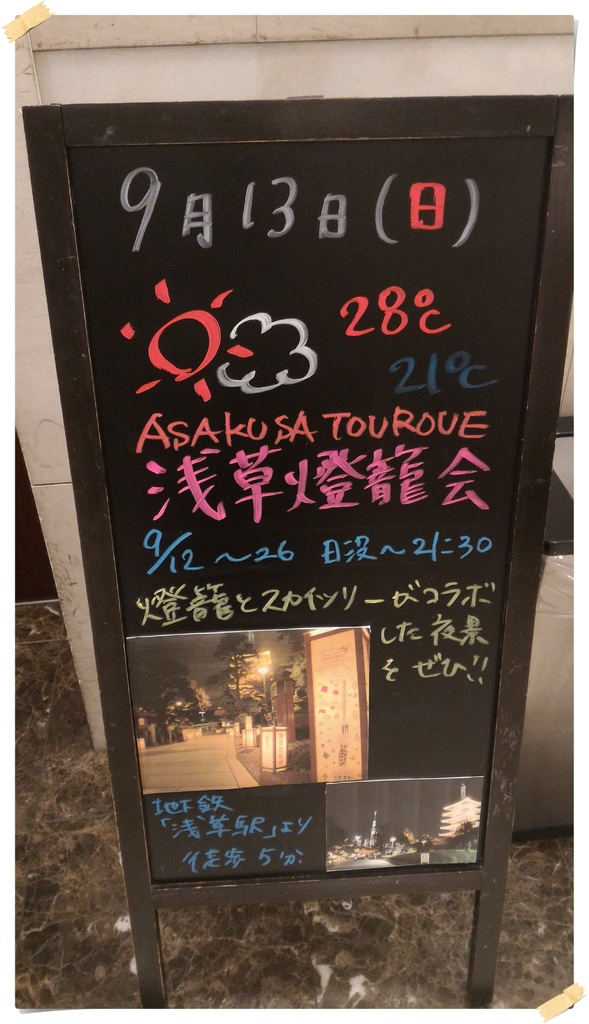 9月13日(日)
28℃
21℃
ASAKUSA TOUROUE
浅草燈籠会
9/12～26 日没～21:30
燈籠とスカイツリーがコラボ
した夜景
をぜひ!!
地下鉄
「浅草駅」より
徒歩5分